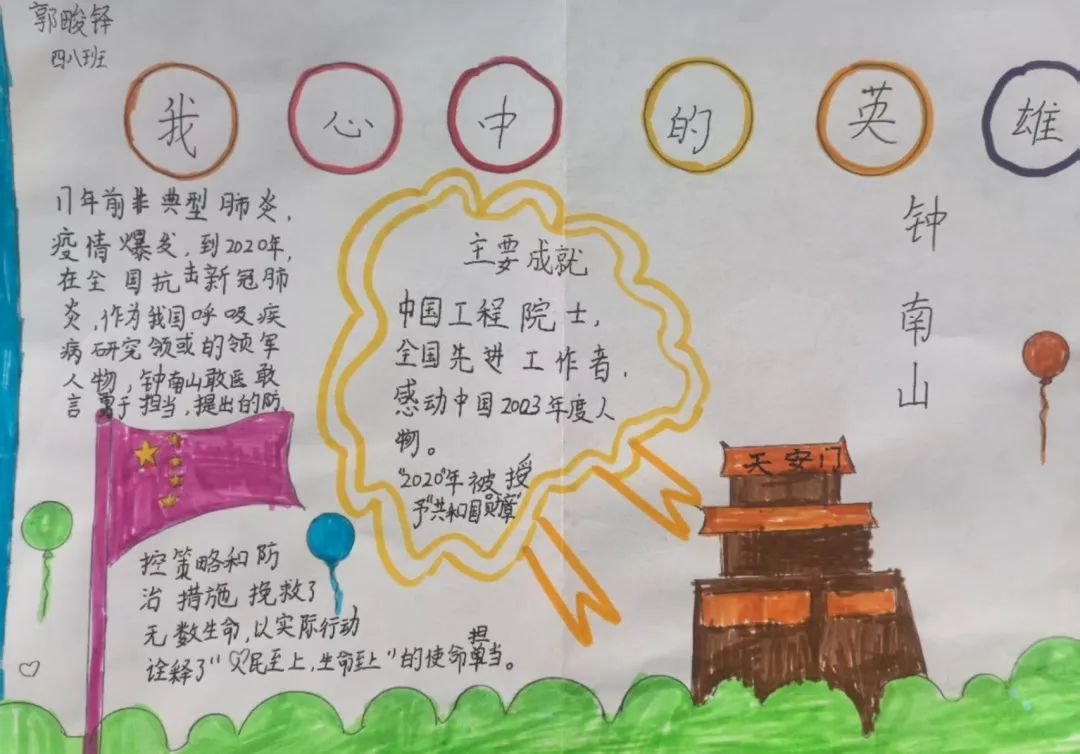 郭畯铎
四八班
我心中的英雄
钟南山
17年前非典型肺炎,
疫情爆发,到2020年,
在全国抗击新冠肺
炎,作为我国呼吸疾
病研究领或的领军
人物,钟南山敢医敢
言勇于担当,提出的防
控策略和防
治措施挽救了
无数生命,以实际行动
诠释了“人民至上,生命至上”的使命担当。
主要成就
中国工程院士,
全国先进工作者,
感动中国2003年度人
物。
“2020”年被授
予“共和国勋章”
天安门